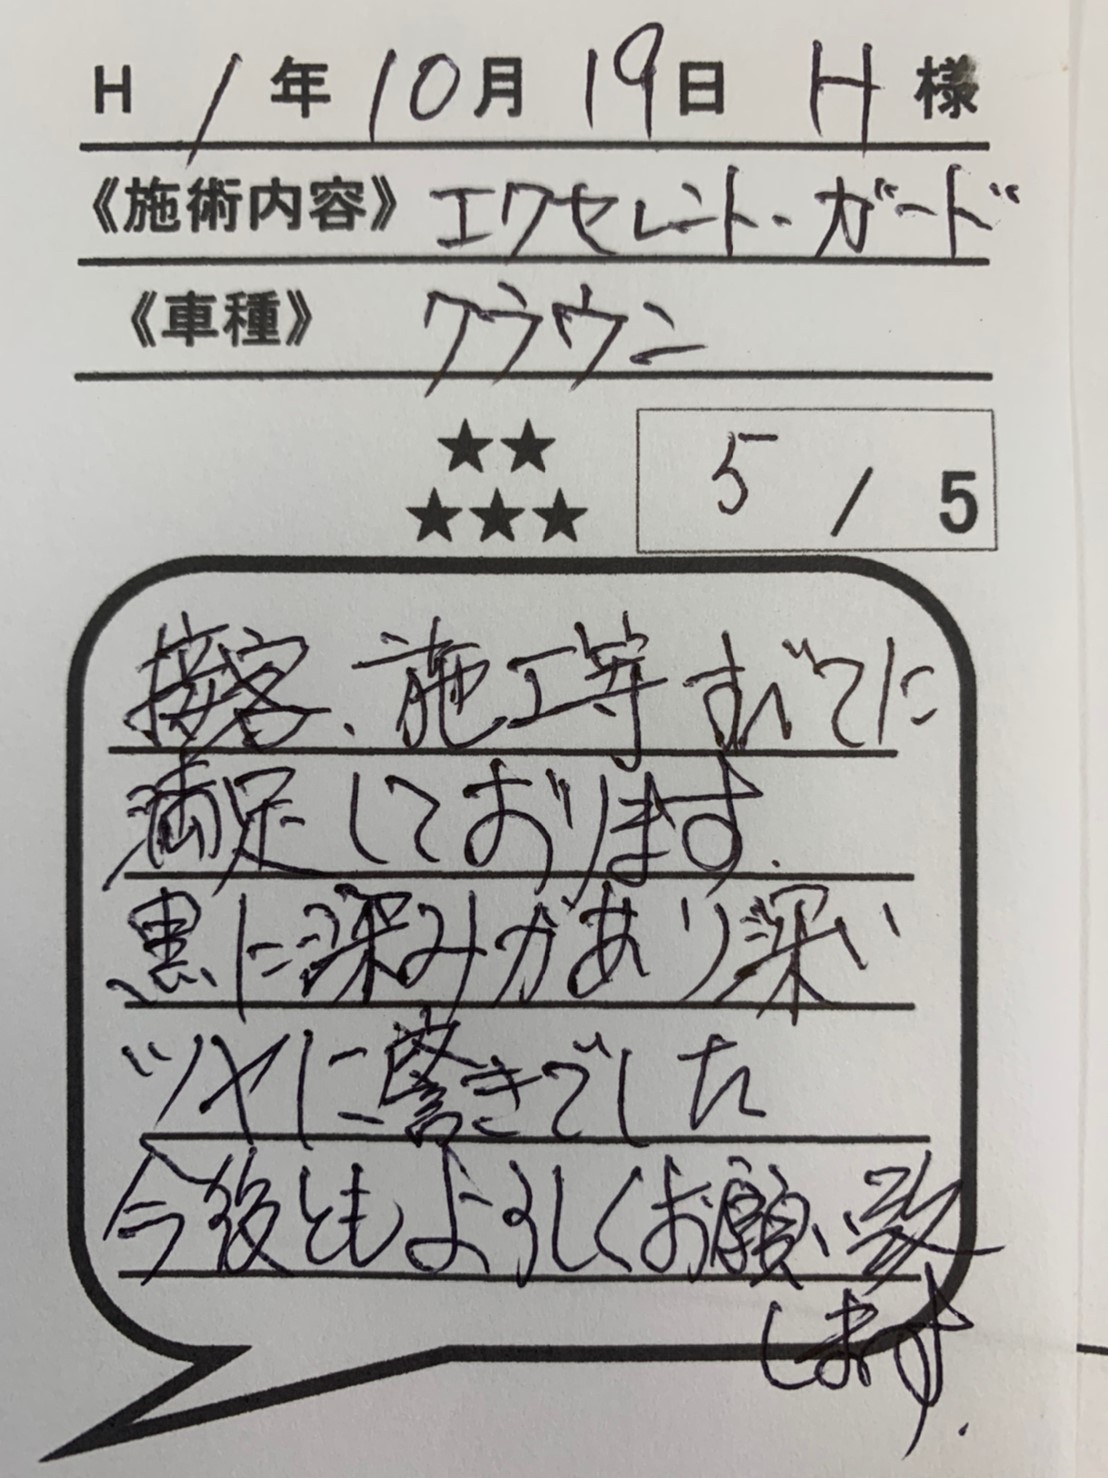 H 1年10月19日 H様
《施術内容》 エクセレント・ガード
《車種》 クラウン
★★
★★★ 5/5
接客、施工等すべてに
満足しております.
黒に深みがあり深い
ツヤに驚きでした
今後ともよろしくお願い致
します.